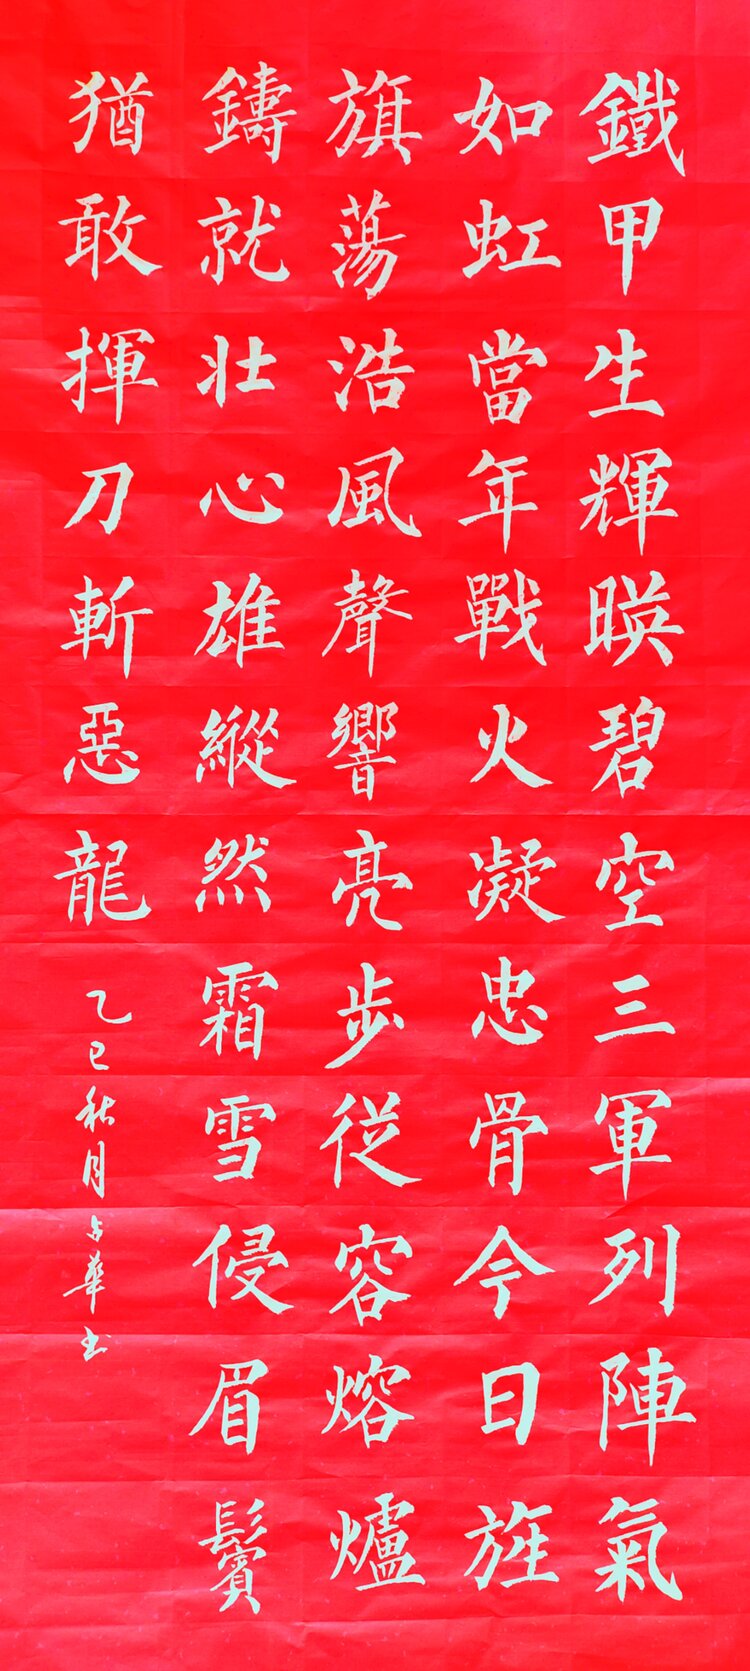 鐵甲生輝暎碧空三軍列陣氣
如虹當年戰火凝忠骨今日旌
旗蕩浩風聲響亮步従容熔爐
鑄就壯心雄縱然霜雪侵眉鬢
猶敢揮刀斬惡龍
乙巳秋月占華书